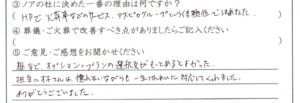 ③ノアの杜に決めた一番の理由は何ですか？
HPで火葬車などのサービス、アスピアグループという信頼性で決めました。
④葬儀・ご火葬で改善すべき点がありましたらご記入ください
⑤ご意見・ご感想をお聞かせください
庭など、オプション・プランの選択肢がもてあるとよかった。
担当の方は慣れないながらも一生けんめいに対応してくれました。
ありがとうございました。